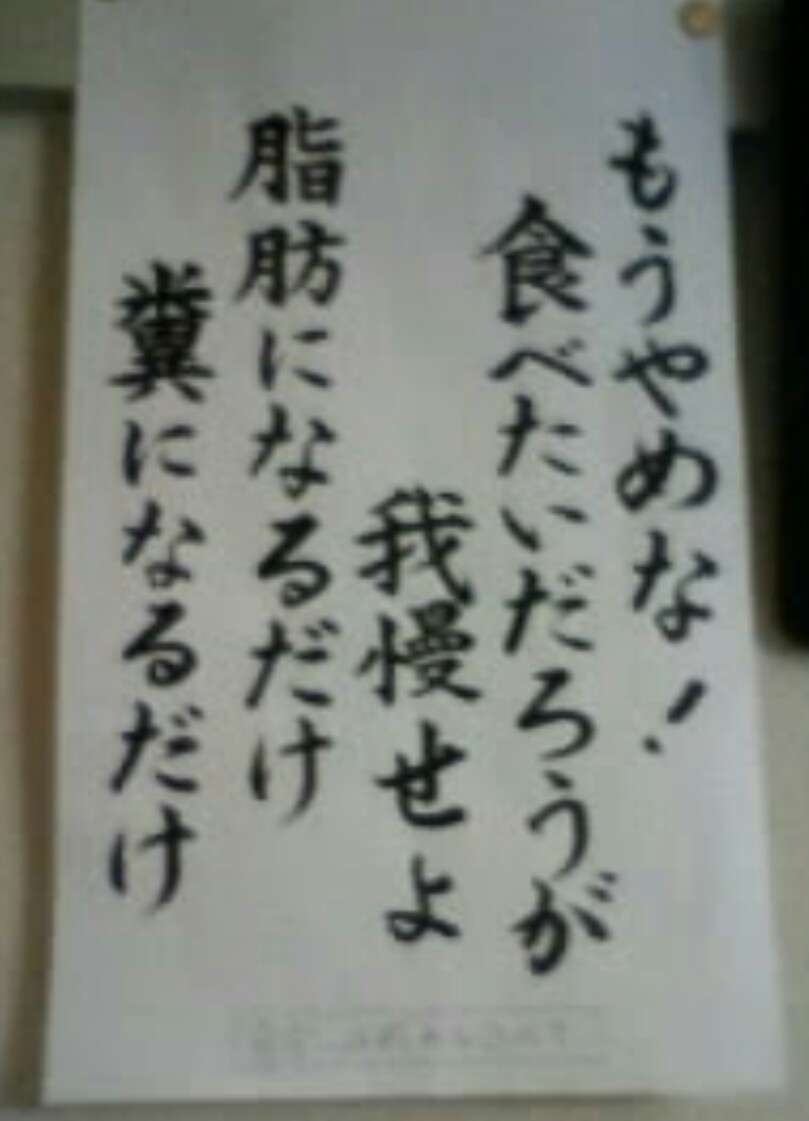 もうやめな!
食べたいだろうが
我慢せよ
脂肪になるだけ
糞になるだけ